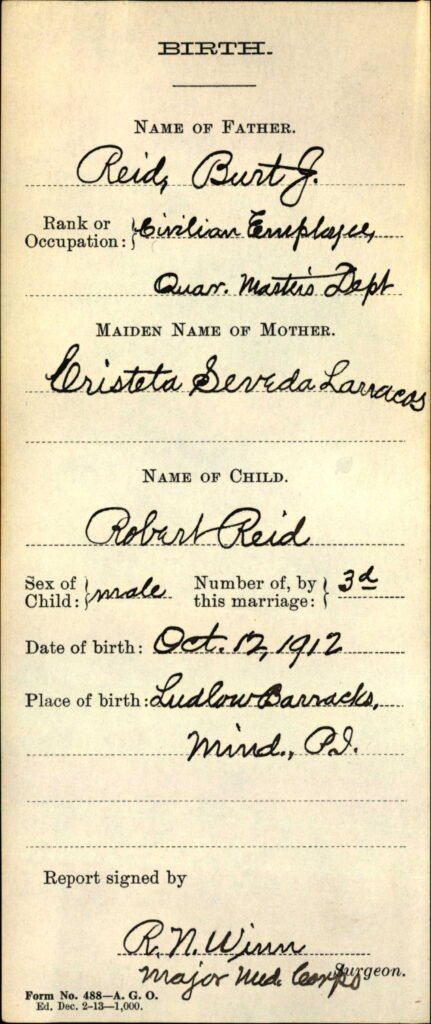 BIRTH.
NAME OF FATHER.
Reid, Burt J.
Rank or Occupation: Civilian Employee,
Quar. Master's Dept
MAIDEN NAME OF MOTHER.
Cristeta Seveda Larracos
NAME OF CHILD.
Robert Reid
Sex of Child: male Number of, by this marriage: 3d
Date of birth: Oct. 12, 1912
Place of birth: Ludlow Barracks,
Mind., P.I.
Report signed by
R. N. Winn
Major Med. Corps Surgeon.
Form No. 488—A. G. O.
Ed. Dec. 2-13—1,000.